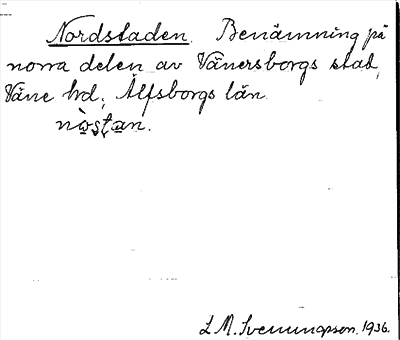 Nordstaden. Benämning på
norra delen av Vänersborgs stad,
Väne hd, Älfsborgs län.
nòs̩t̩an.
L. M. Svenungsson. 1936.